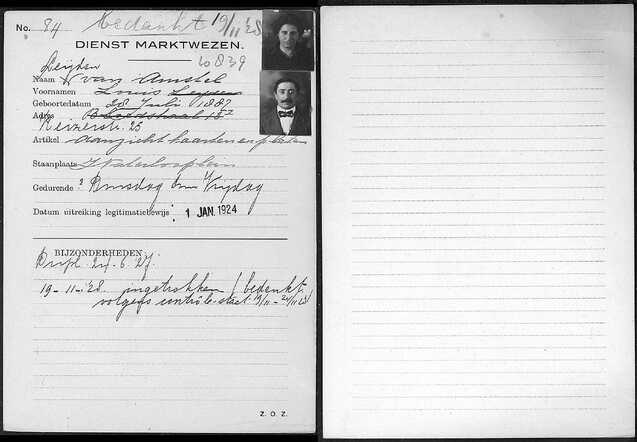 No. 84 Bedankt 19/11 '28
DIENST MARKTWEZEN.
Leijden 60839
Naam v van Amstel
Voornamen Louis
Geboortedatum 28 Juli 1887
Adres
Keizerstr. 25
Artikel aanzichtkaarten en
Staanplaats Waterlooplein
Gedurende Dinsdag t/m Vrijdag
Datum uitreiking legitimatiebewijs: 1 JAN. 1924
BIJZONDERHEDEN
Dupl. 27.6.27.
19-11-'28 ingetrokken / bedankt
volgens contrôle-staat 19/11 - 24/11 28 /
Z. O. Z.